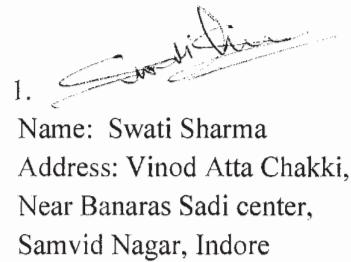 1.
Name: Swati Sharma
Address: Vinod Atta Chakki,
Near Banaras Sadi center,
Samvid Nagar, Indore